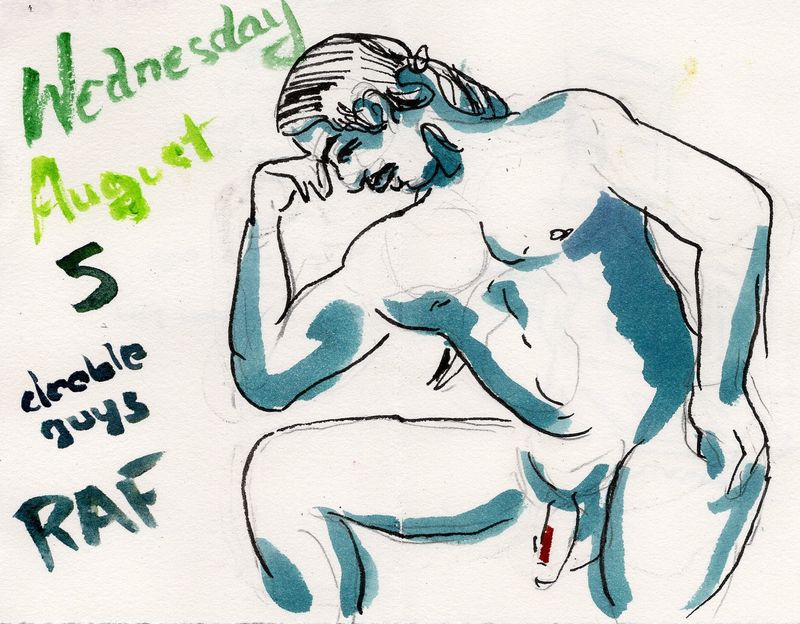 Wednesday
August
5
guys
RAF